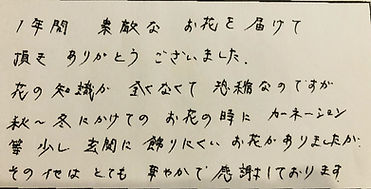 1年間 素敵な お花を届けて
頂き ありがとう ございました.
花の知識が 全くなくて 恐縮なのですが
秋〜冬にかけての お花の時に カーネーション
等 少し 玄関に 飾りにくい お花がありましたが.
その他は とても 華やかで 感謝しております